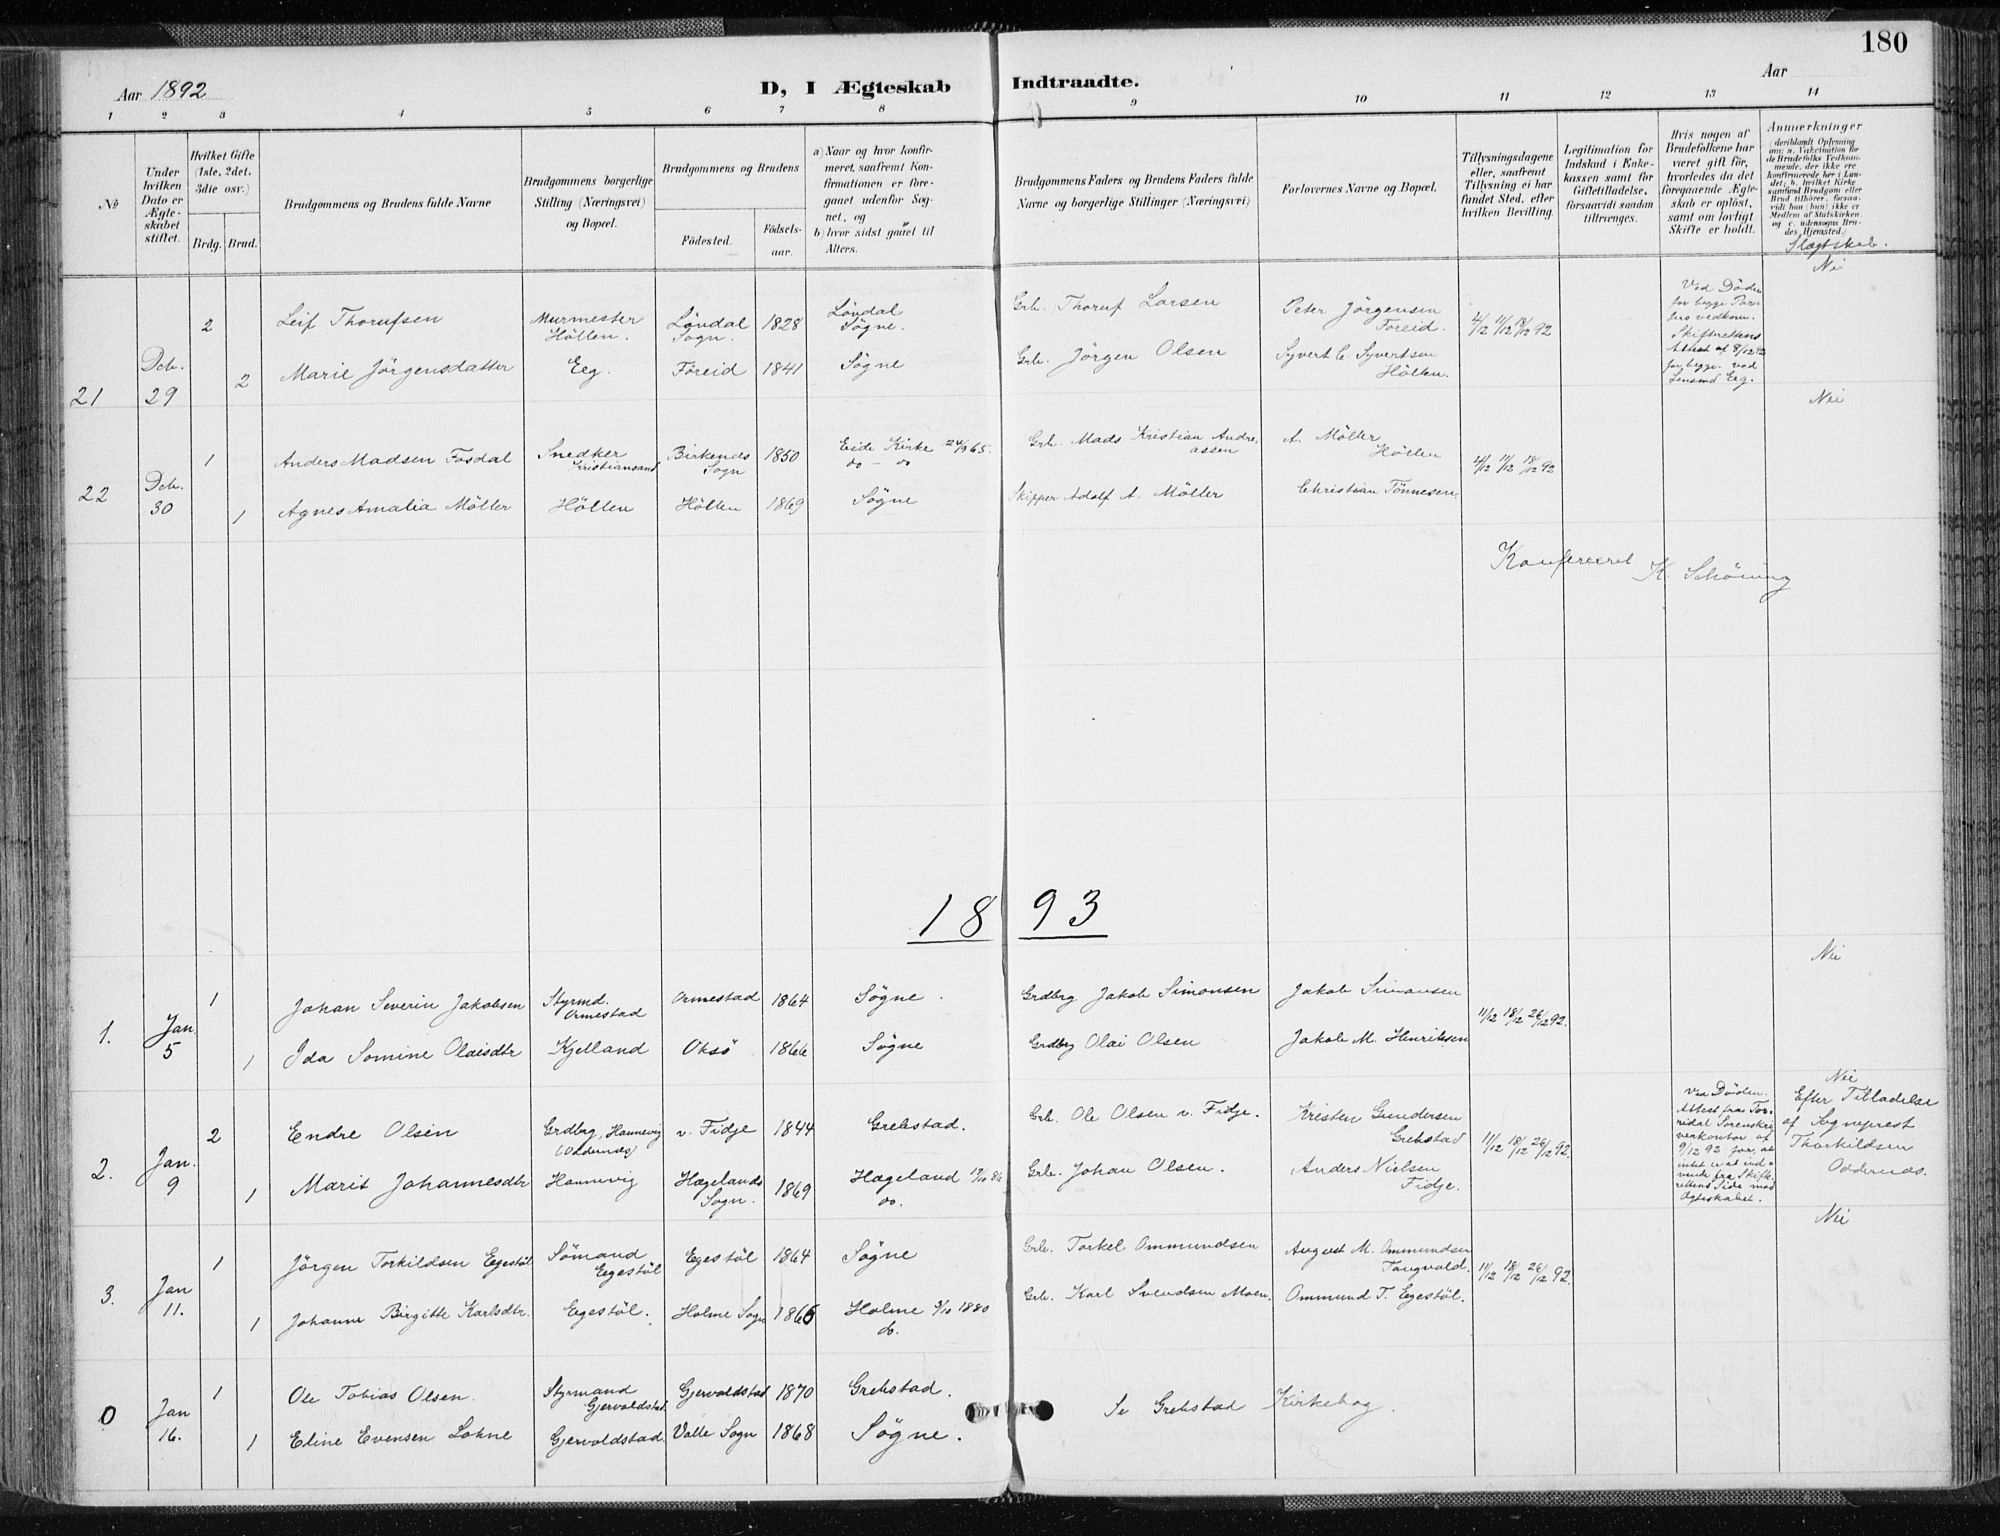 180
Aar 1892
D, I Ægteskab Indtraadte.
Aar
1 2 3 4 5 6 7 8 9 10 11 12 13 14
No
Under hvilken Dato er Ægteskabet stiftet.
Hvilket Gifte (1ste, 2det, 3die osv.)
Brdg. Brud.
Brudgommens og Brudens fulde Navne
Brudgommens borgerlige Stilling (Næringsvei) og Bopæl.
Brudgommens og Brudens
Födested.
Födselsaar.
a) Naar og hvor konfirmeret, saafremt Konfirmationen er foregaaet udenfor Sognet, og
b) hvor sidst gaaet til Alters.
Brudgommens Faders og Brudens Faders fulde Navne og borgerlige Stillinger (Næringsvei)
Forlovernes Navne og Bopæl.
Tillysningsdagene eller, saafremt Tillysning ei har fundet Sted, efter hvilken Bevilling.
Legitimation for Indskud i Enkekassen samt for Giftetilladelse, forsaavidt saadan tiltrænges.
Hvis nogen af Brudefolkene har været gift för, hvorledes da det foregaaende Ægteskab er oplöst, samt om lovligt Skifte er holdt.
Anmærkninger
deriblandt Oplysning om: a. Vakcination for de Brudefolks Vedkommende, der ikke ere konfirmerede her i Landet; b. hvilket Kirkesamfund Brudgom eller Brud tilhörer, forsaavidt han (hun) ikke er Medlem af Statskirken, og c. udensogns Brudes Hjemsted.
Slægtskab.
21 Dcb. 29
2 Leif Thorufsen Murmester Höllen. Löndal Sogn. 1828 Löndal Sögne. Grb. Thoruf Larsen Peter Jörgensen Foreid. 4/12 11/12 18/12 92
Ved Döden for begge Parters vedkom. Skifterettens Attest af 8/12 92 for begge. ved Lensmd Eeg.
Nei
2 Marie Jörgensdatter Eeg. Föreid 1841 Sögne Grb. Jörgen Olsen Syvert C. Syvertsen Höllen.
22 Dcb. 30
1 Anders Madsen Fosdal Snedker Kristiansand Birkenes Sogn 1850 Eide Kirke 24/9 65. do - do Grb. Mads Kristian Andreassen A. Möller Höllen 4/12 11/12 18/12 92
Nei
1 Agnes Amalia Möller Höllen Höllen 1869 Sögne Skipper Adolf A. Möller Christian Tönnesen.
Konfereret K. Schöning
1893
1. Jan 5
1 Johan Severin Jakobsen Styrmd. Ormestad Ormestad 1864 Sögne. Grdbrg Jakob Simonsen Jakob Simonsen 11/12 18/12 26/12 92.
Nei
1 Ida Somine Olaisdtr Kjelland Oksö 1866 Sögne Grdbrg Olai Olsen Jakob M. Henriksen
2. Jan. 9
2 Endre Olsen Grdbrg, Hannevig (Oddernæs) v. Fidje 1844 Grebstad. Grb. Ole Olsen v. Fidje. Kristen Gundersen Grebstad 11/12 18/12 26/12 92.
Ved Döden. Attest fra Torridal Sorenskriverkontor af 9/12 92 for, at intet er at indvende fra Skifterettens Side mod Ægteskabet.
Nei
Efter Tilladelse af Sogneprest Thorkildsen Oddernæs.
1 Marit Johannesdtr Hannevig Hægelands Sogn. 1869 Hægeland 17/10 86 do. Grb. Johan Olsen. Anders Nielsen Fidje.
3. Jan 11.
1 Jörgen Torkildsen Egestöl Sömand Egestöl Egestöl 1864 Sögne Grb. Torkel Ommundsen August M. Ommundsen Tangvald. 11/12 18/12 26/12 92.
Nei
1 Johanne Birgitte Karlsdtr. Egestöl. Holme Sogn 1866 Holme 3/10 1880 do. Grb. Karl Svendsen Moen. Ommund T. Egestöl.
0 Jan 16.
1 Ole Tobias Olsen. Styrmand Gjervoldstad Gjervoldstad 1870 Grebstad. Se Grebstad Kirkebog.
1 Eline Evensen Lohne Gjervoldstad. Valle Sogn 1868 Sögne.